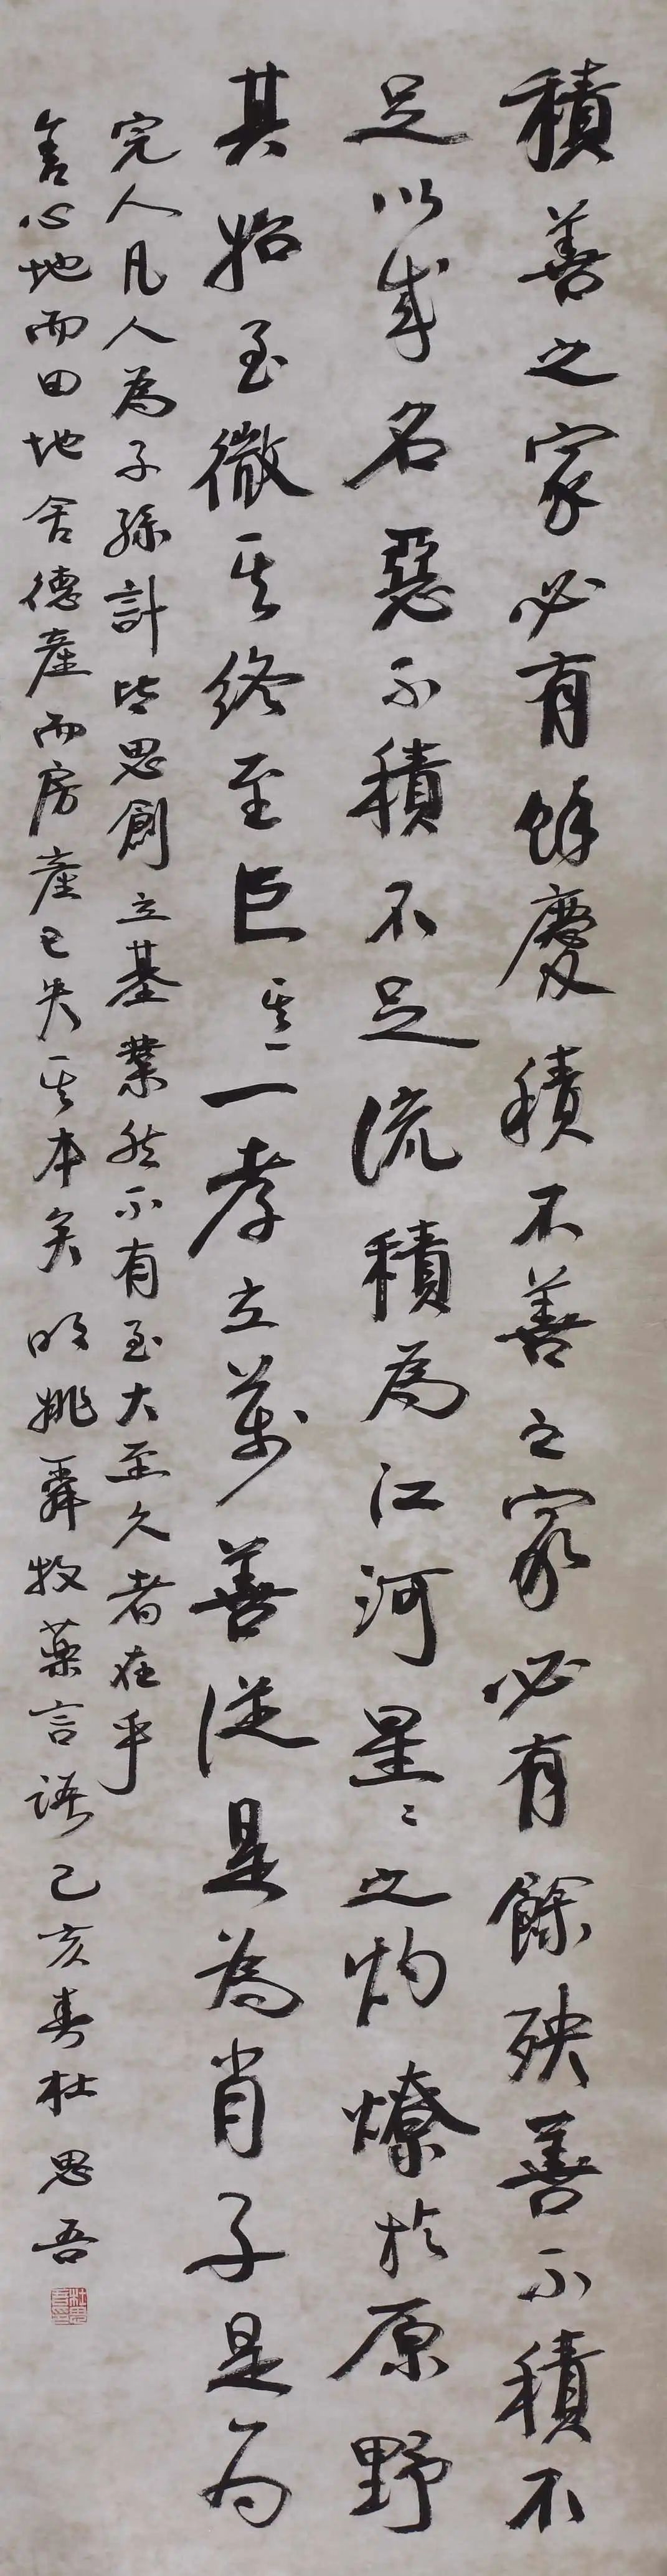 積善之家必有餘慶積不善之家必有餘殃善不積不
足以成名惡不積不足流積為江河星〻之灼燎於原野
其始至微其終至巨其一孝立萬善從是為肖子是為
完人凡人為子孫計皆思創立基業然不有至大至久者在乎
舍心地而田地舍德產而房產已失其本矣明姚舜牧藥言語己亥春杜思吾
杜思吾印